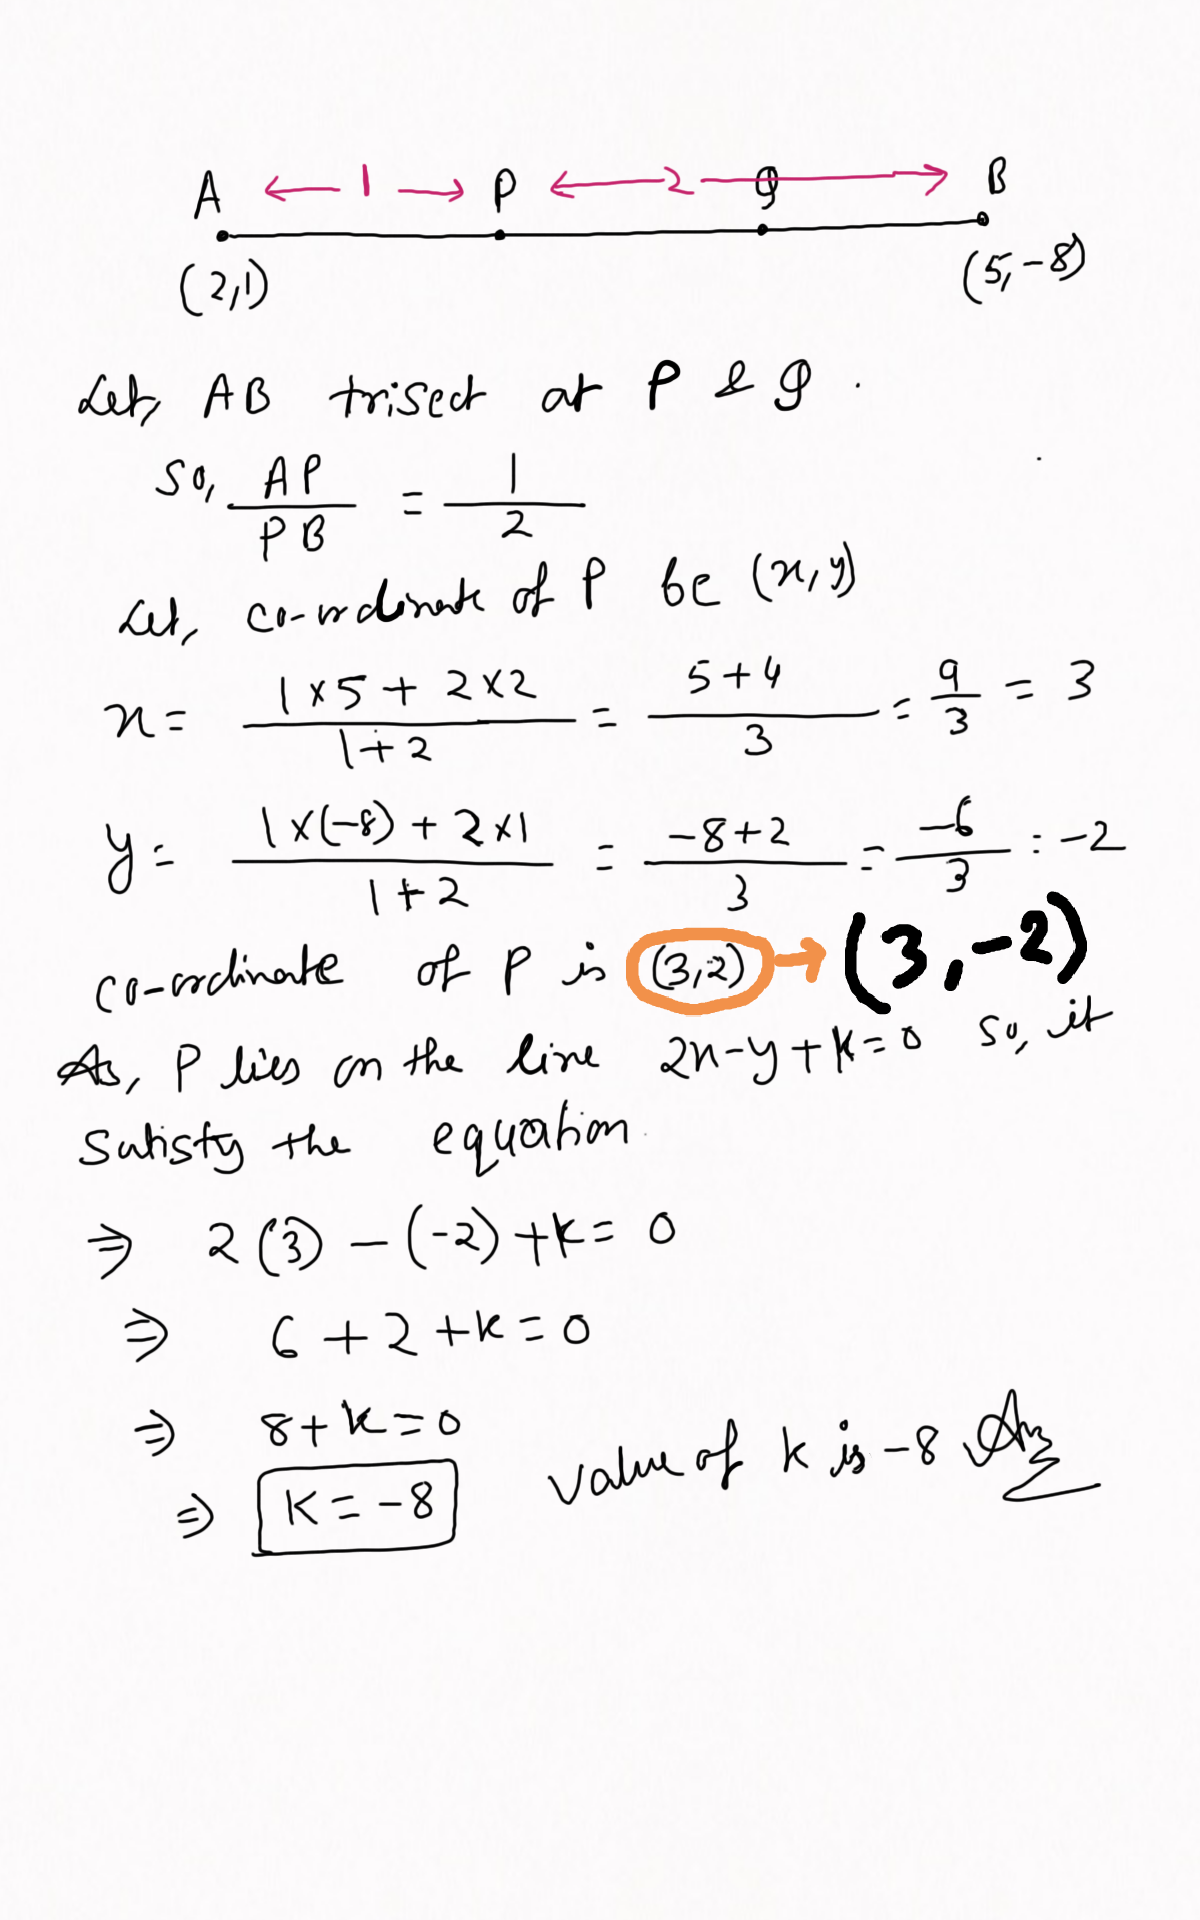 A ← 1 → P ← 2 → Q B
(2,1) (5,-8)
Let, AB trisect at P & Q.
So, AP/PB = 1/2
Let, co-ordinate of P be (x,y)
x = (1×5 + 2×2)/(1+2) = (5+4)/3 = 9/3 = 3
y = (1×(-8) + 2×1)/(1+2) = (-8+2)/3 = -6/3 = -2
co-ordinate of P is (3,2) → (3,-2)
As, P lies on the line 2x-y+k=0 so, it
satisfy the equation.
⇒ 2(3) - (-2) + k = 0
⇒ 6 + 2 + k = 0
⇒ 8 + k = 0
⇒ K = -8 value of k is -8 Ans